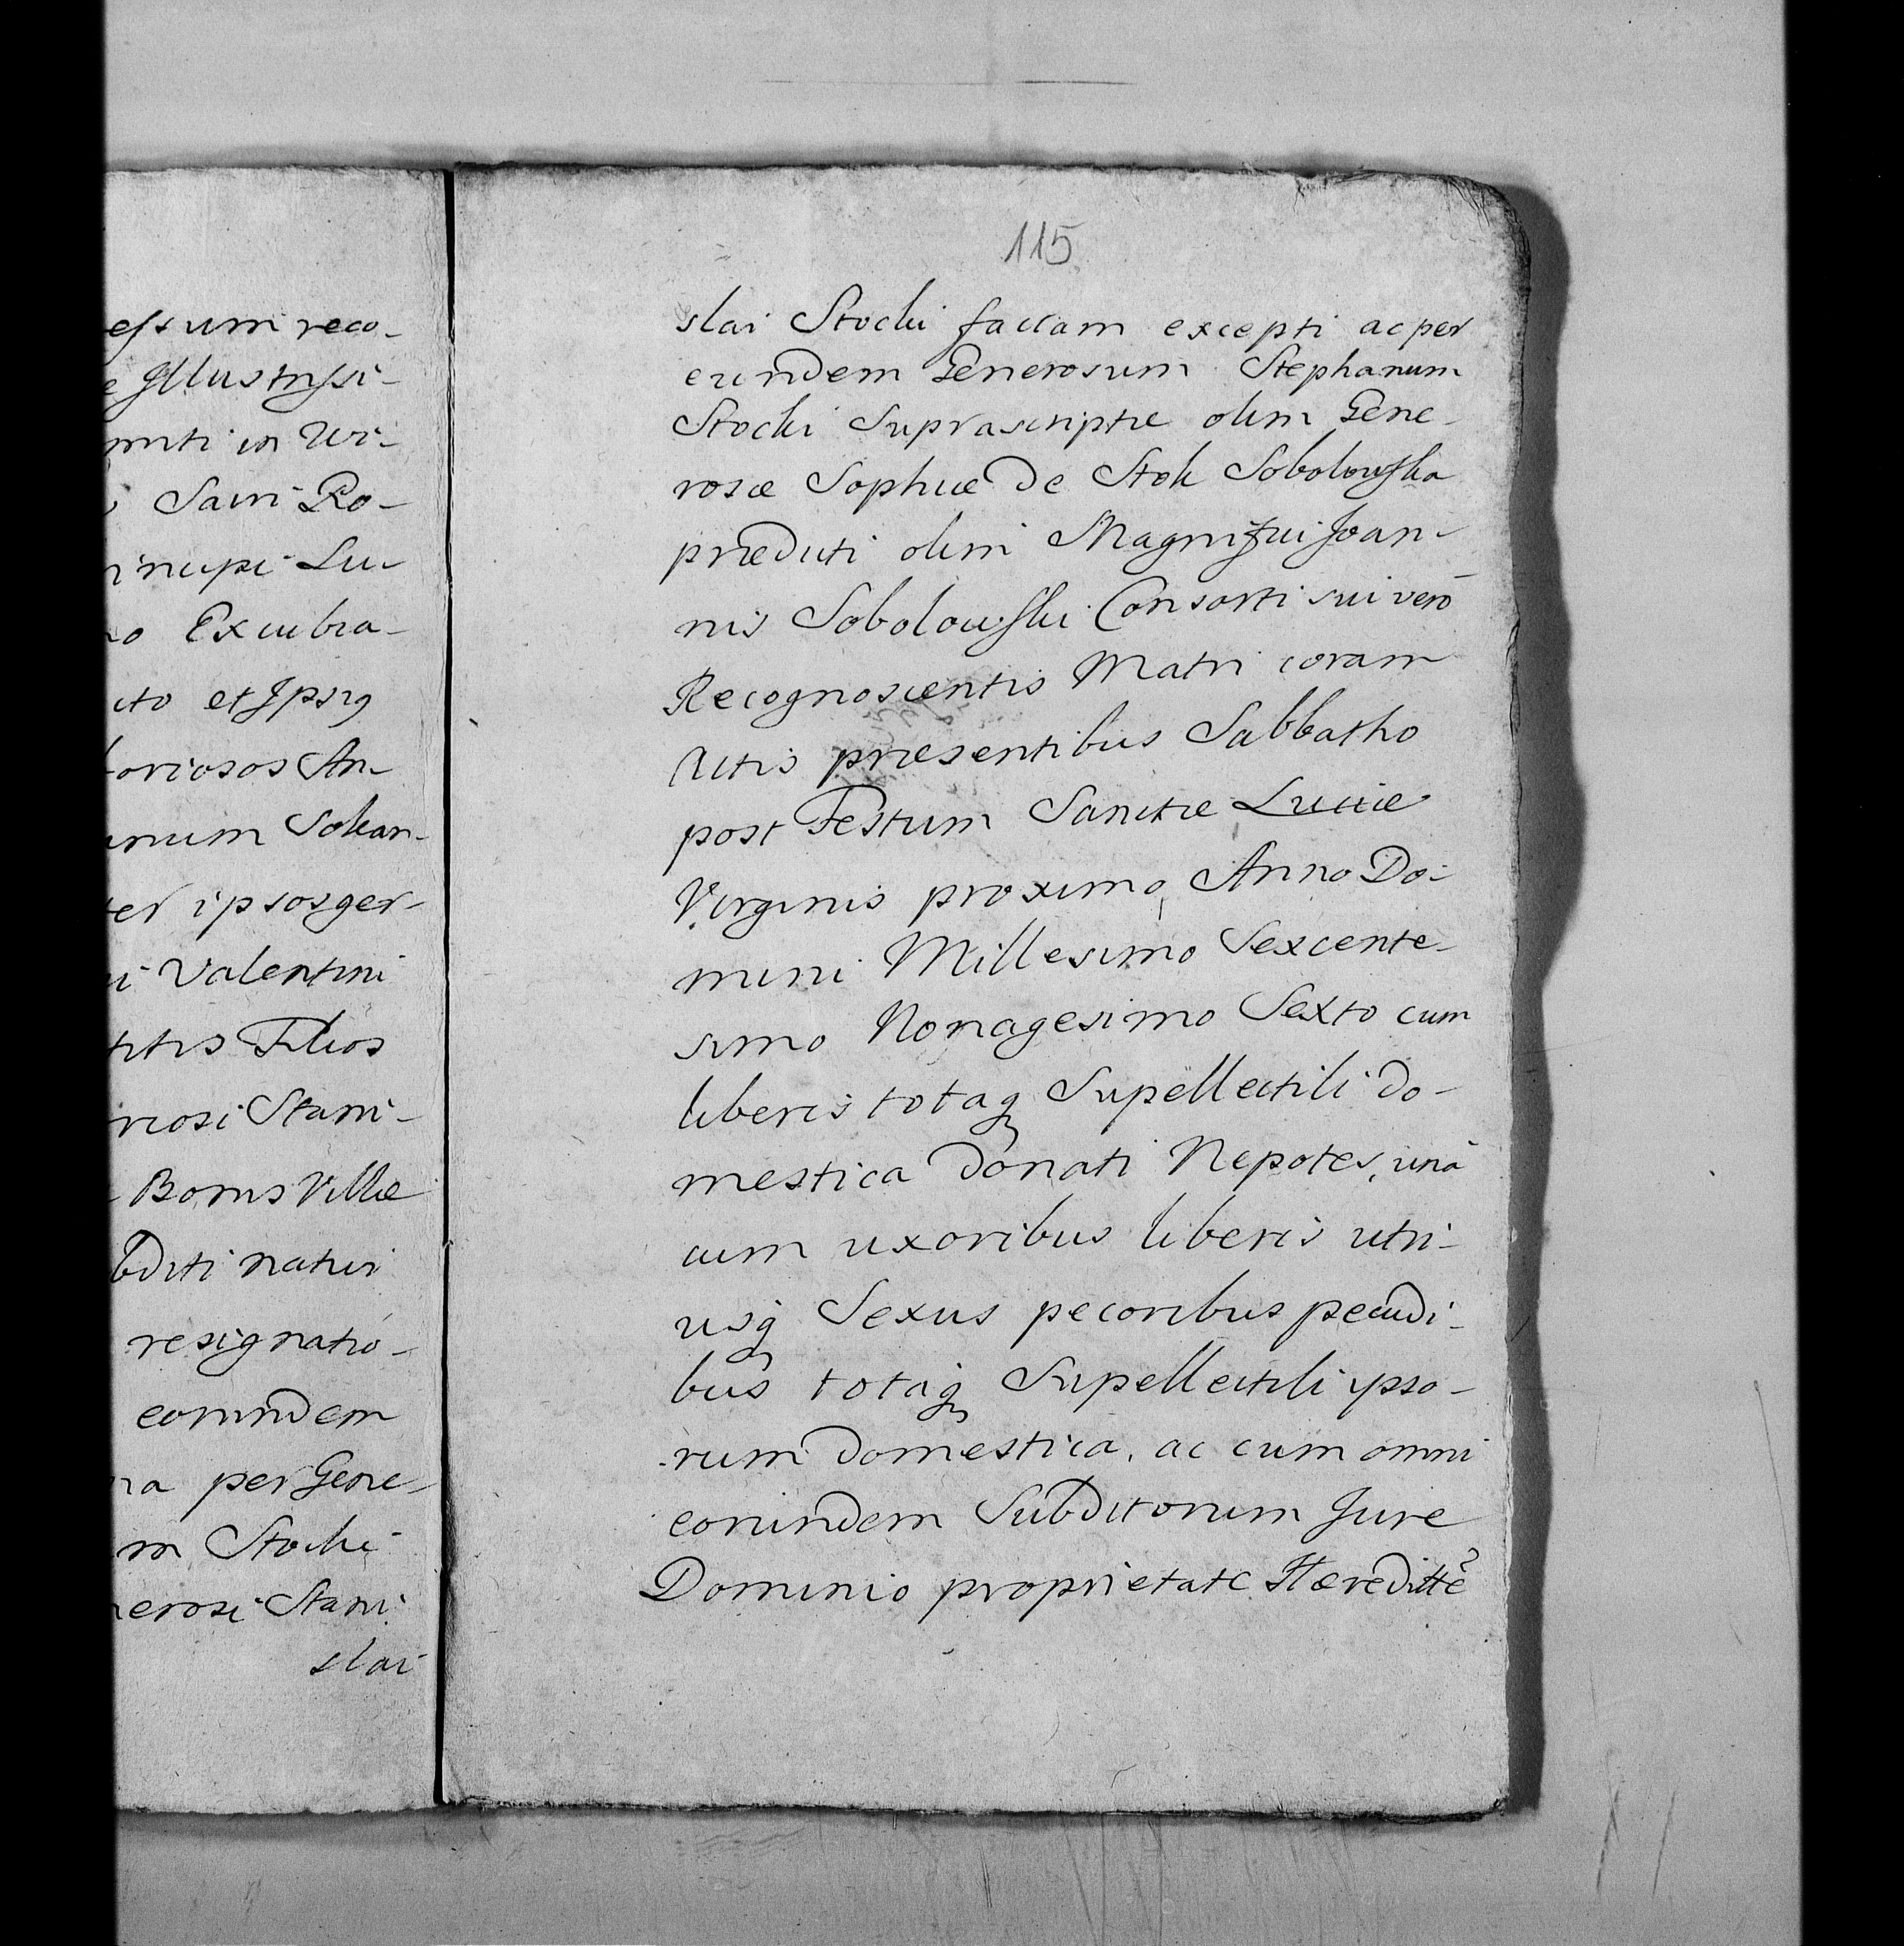 essum reco-
e Illustrissi-
Sacri Ro-
rincipi Lu-
Excubra-
cto et Ipsiq
boriosos An-
Sokan-
ter ipsos ger-
Valentini
Filios
riosi Stani-
Bonis Villæ
bditi nativi
resignatio-
eorundem
per Gene-
m Stocki
nerosi Stani
slai
115
slai Stocki factam excepti ac per
eundem Generosum Stephanum
Stocki Suprascriptæ olim Gene-
rosæ Sophiæ De Stok Sobolowska
prædicti olim Magnifici Joan-
nis Sobolowski Consorti sui verò
Recognoscentis Matri coram
Actis præsentibus Sabbatho
post Festum Sanctæ Luciæ
Virginis proximo, Anno Do-
mini Millesimo Sexcente-
simo Nonagesimo Sexto cum
liberis totaq Supellectili do-
mestica donati Nepotes, unà
cum uxoribus liberis utri-
usq Sexus pecoribus pecudi-
bus totaq Supellectili ipso-
rum domestica, ac cum omni
eorundem Subditorum Jure
Dominio proprietate Hæreditte